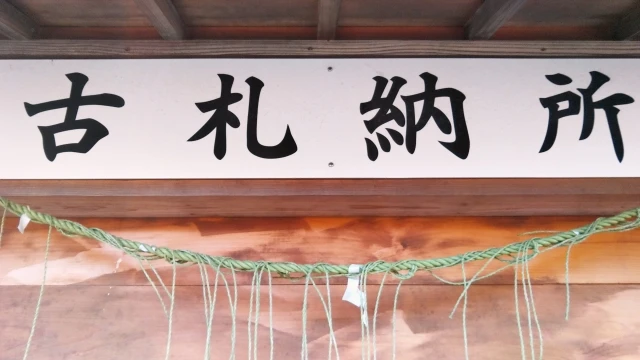 古札納所